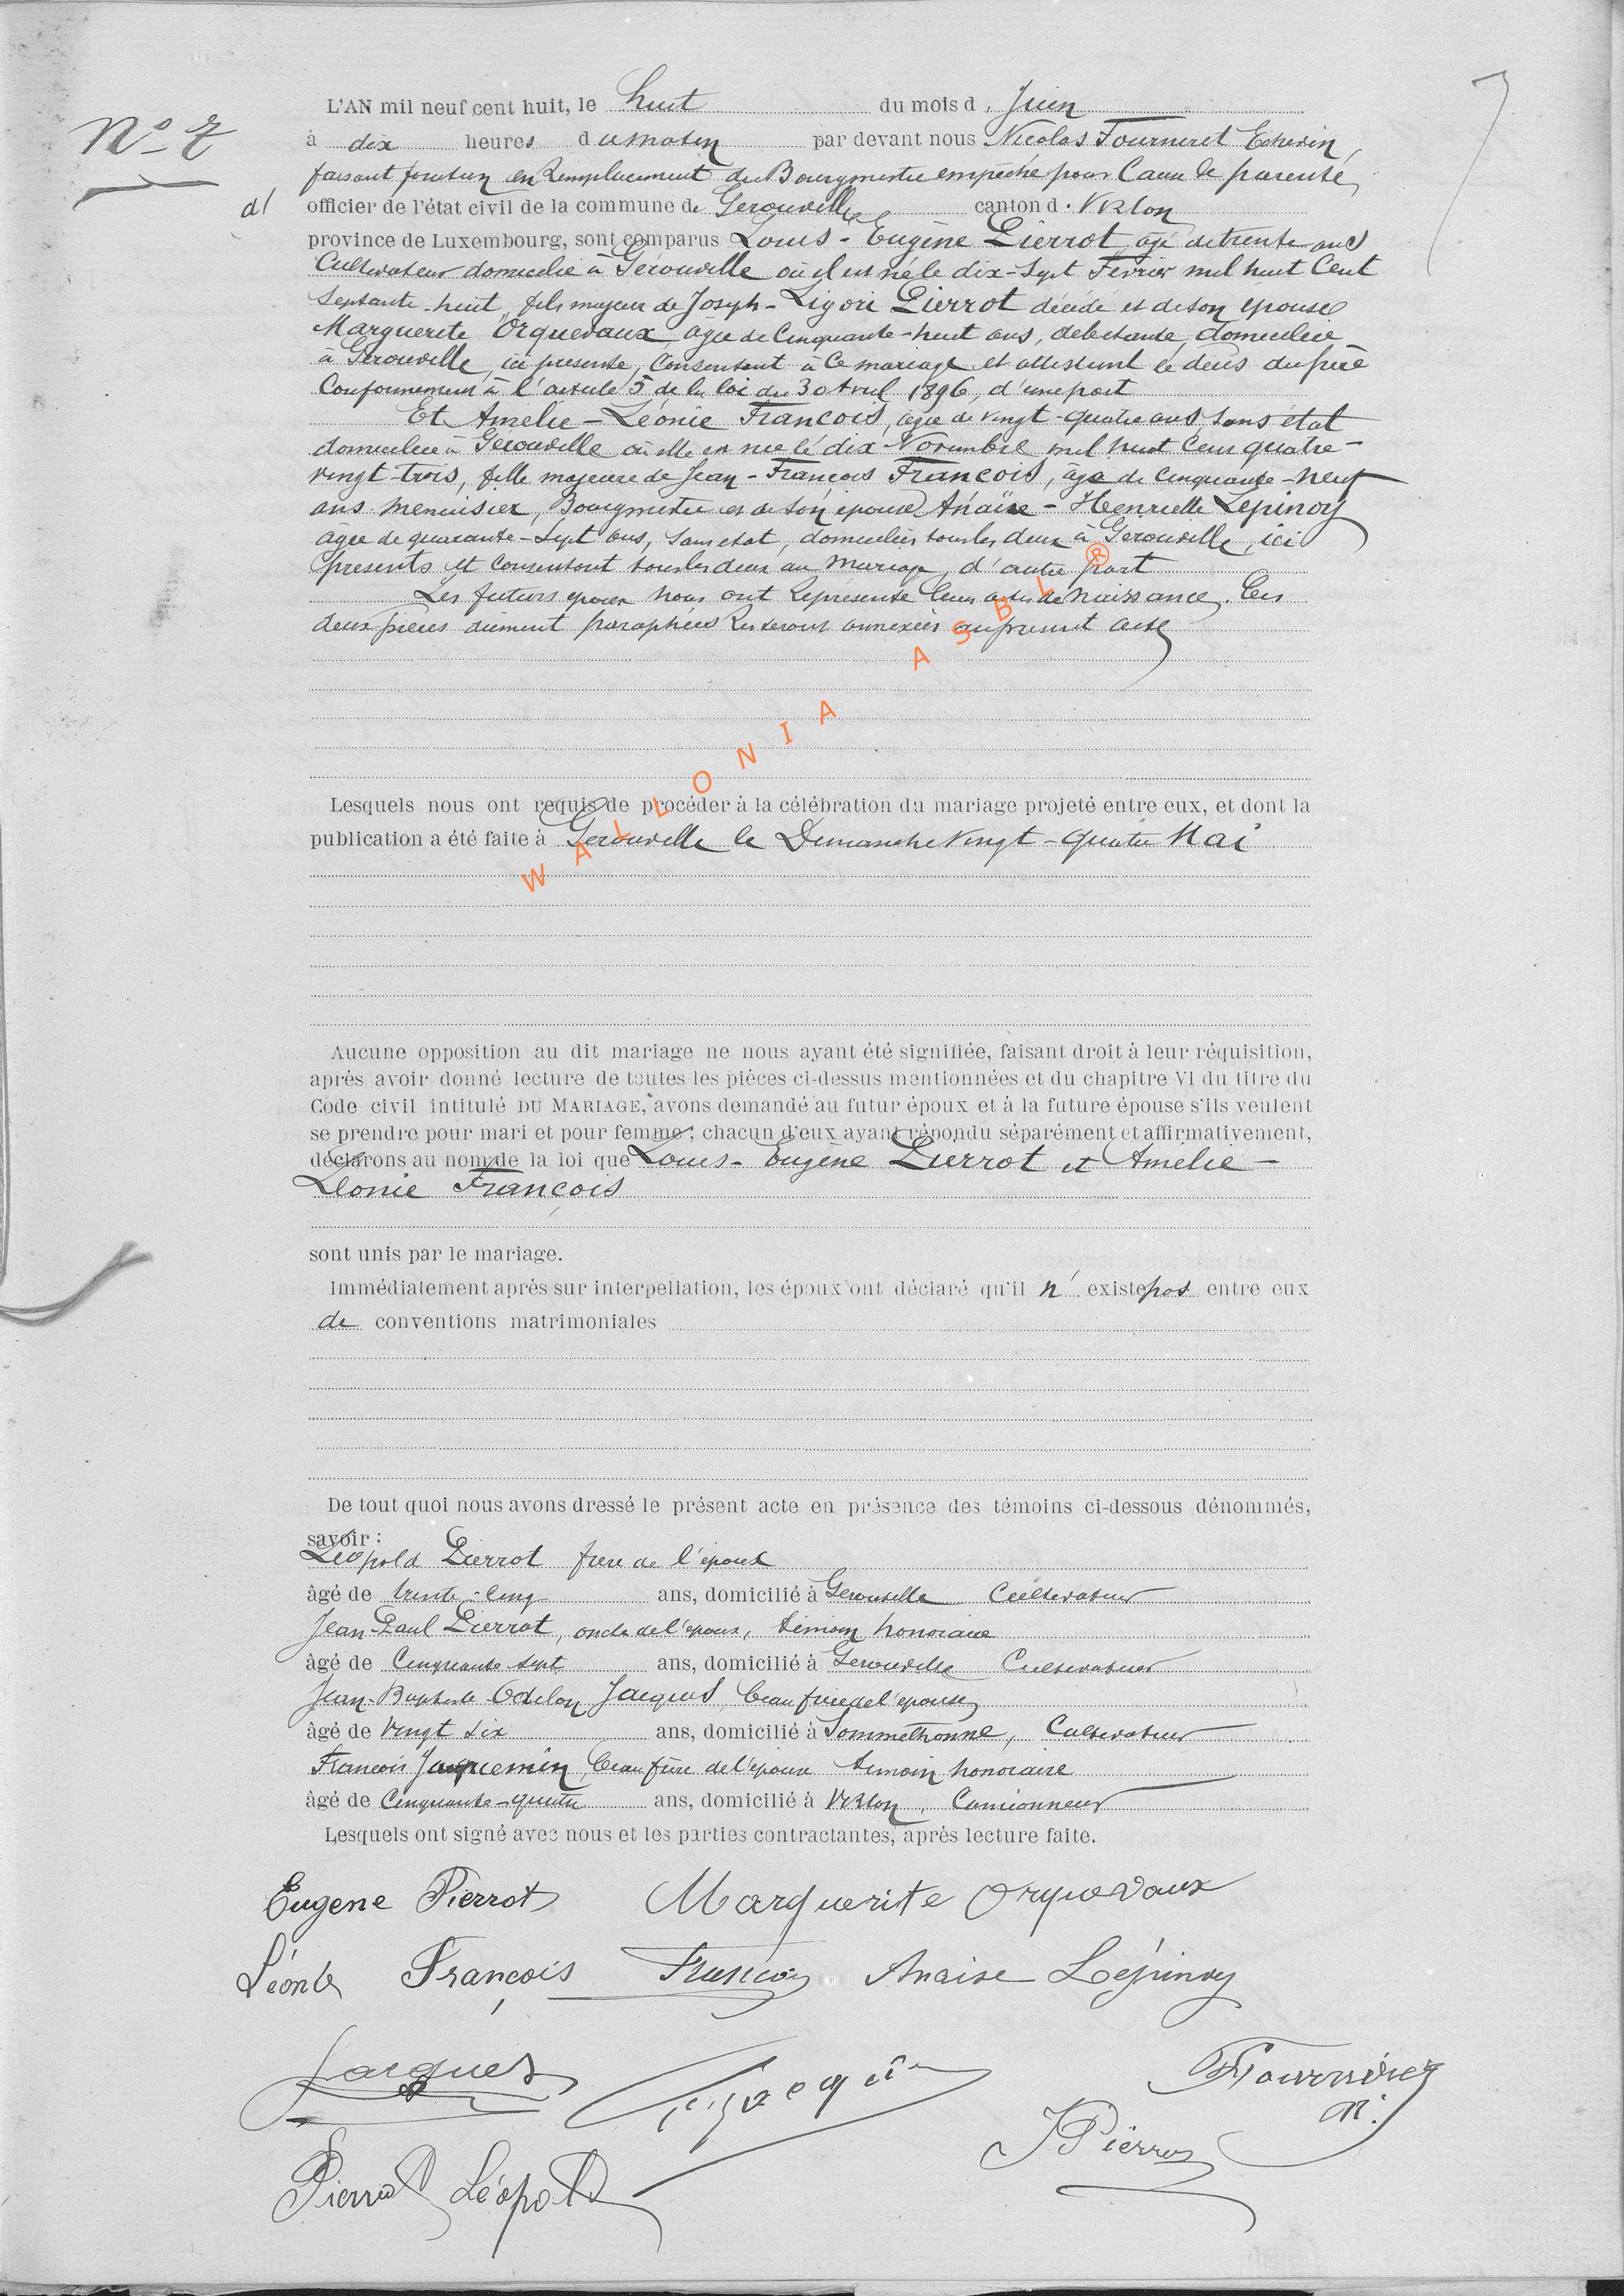 No 7
L'AN mil neuf cent huit, le huit du mois d. Juin
à dix heures du matin par devant nous Nicolas Tourneret Echevin,
faisant fonction en Remplacement du Bourgmestre empêché pour Cause de parenté,
officier de l'état civil de la commune de Gerouville canton d. Virton
province de Luxembourg, sont comparus Louis-Eugène Pierrot, âgé de trente ans
Cultivateur domicilié à Gérouville où il est né le dix-Sept Février mil huit Cent
Septante-huit, fils majeur de Joseph-Ligori Pierrot décédé et de son épouse
Marguerite Orquevaux, âgée de Cinquante-huit ans, débitante, domiciliée
à Gérouville, ici présente, Consentant à Ce mariage et attestant le décès du père
Conformément à l'article 5 de la loi du 30 Avril 1896, d'une part
Et Amélie-Léonie François, âgée de vingt-quatre ans, sans état
domiciliée à Gérouville où elle est née le dix Novembre mil huit Cent quatre-
vingt-trois, fille majeure de Jean-François François, âgé de Cinquante-neuf
ans Menuisier, Bourgmestre et de son épouse Anaïse-Henriette Lépinoy
âgée de quarante-Sept ans, Sans état, domiciliés tous les deux à Gérouville, ici
présents et Consentant tous les deux au Mariage, d'autre part
Les futurs époux Nous ont Représenté leurs actes de Naissance. Ces
deux pièces dûment paraphées Resteront annexées au présent acte
WALLONIA ASBL ®
Lesquels nous ont requis de procéder à la célébration du mariage projeté entre eux, et dont la
publication a été faite à Gerouville le Dimanche Vingt-quatre Mai
Aucune opposition au dit mariage ne nous ayant été signifiée, faisant droit à leur réquisition,
après avoir donné lecture de toutes les pièces ci-dessus mentionnées et du chapitre VI du titre du
Code civil intitulé DU MARIAGE, avons demandé au futur époux et à la future épouse s'ils veulent
se prendre pour mari et pour femme ; chacun d'eux ayant répondu séparément et affirmativement,
déclarons au nom de la loi que Louis-Eugène Pierrot et Amélie-
Léonie François
sont unis par le mariage.
Immédiatement après sur interpellation, les époux ont déclaré qu'il n' existe pas entre eux
de conventions matrimoniales
De tout quoi nous avons dressé le présent acte en présence des témoins ci-dessous dénommés,
savoir :
Léopold Pierrot frère de l'époux
âgé de trente-Cinq ans, domicilié à Gerouville Cultivateur
Jean-Paul Pierrot, oncle de l'époux, témoin honoraire
âgé de Cinquante sept ans, domicilié à Gerouville Cultivateur
Jean-Baptiste Odilon Jacques beau frère de l'épouse
âgé de Vingt six ans, domicilié à Sommethonne, Cultivateur
François Jacquemin, beau frère de l'époux témoin honoraire
âgé de Cinquante-quatre ans, domicilié à Virton, Camionneur
Lesquels ont signé avec nous et les parties contractantes, après lecture faite.
Eugene Pierrot Marguerite Orquevaux
Léonie François François Anaise Lépinoy
Jacques
Tourneret
N.
JPierrot
Pierrot Léopold